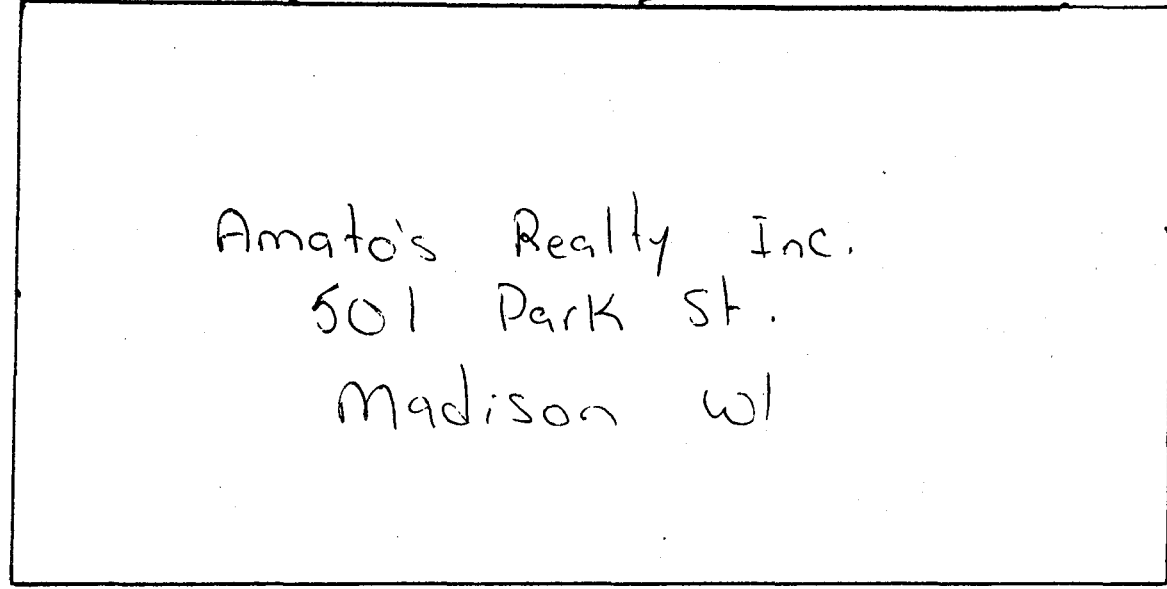 Amato's Realty Inc.
501 Park St.
Madison WI